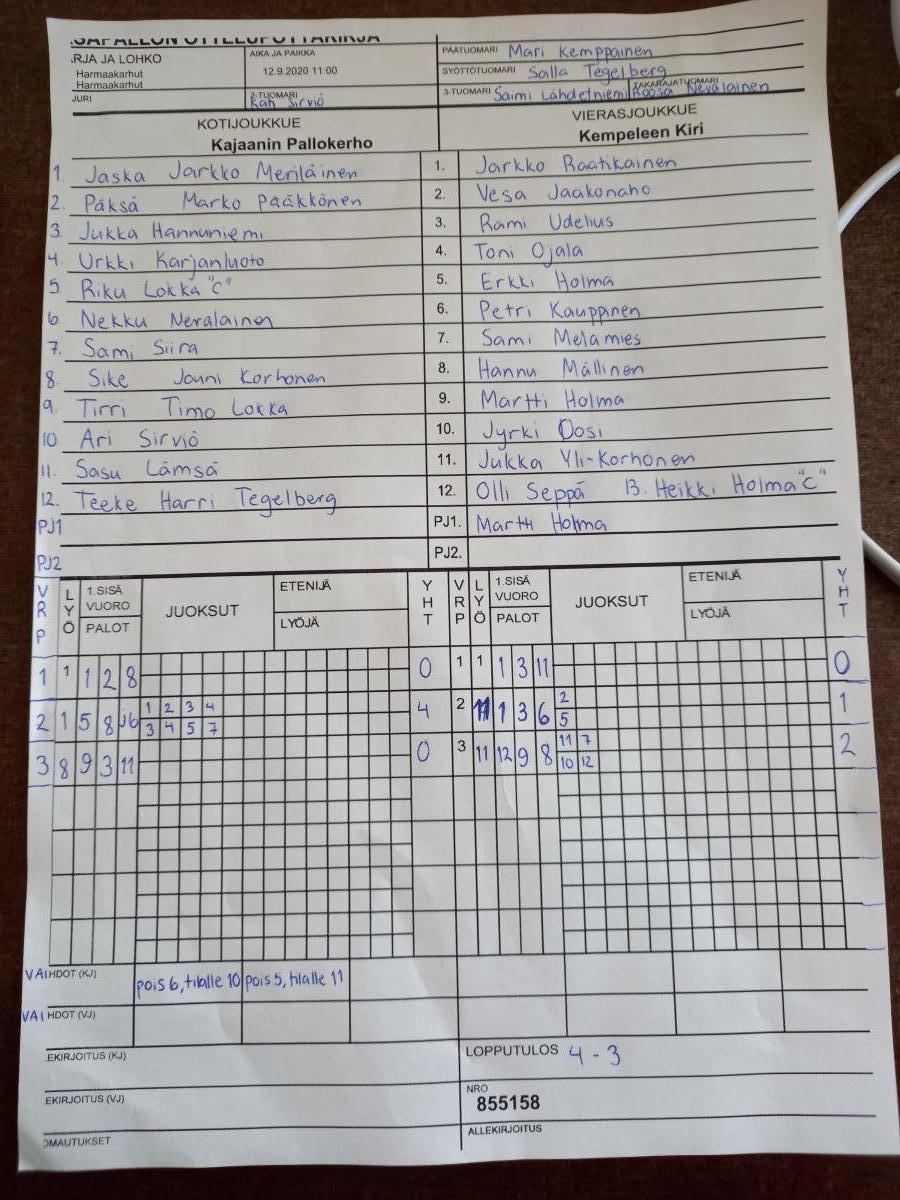 SAPALLON OTTELUPÖYTÄKIRJA
.RJA JA LOHKO
Harmaakarhut
Harmaakarhut
JURI
AIKA JA PAIKKA
12.9.2020 11:00
2-TUOMARI
Sirviö
PÄÄTUOMARI Mari Kemppainen
SYÖTTÖTUOMARI Salla Tegelberg
3-TUOMARI Saimi Lähdetniemi TAKARAJATUOMARI Roosa Nevalainen
KOTIJOUKKUE
Kajaanin Pallokerho
VIERASJOUKKUE
Kempeleen Kiri
1. Jaska Jarkko Meriläinen
2. Päksä Marko Pääkkönen
3. Jukka Hannuniemi
4. Urkki Karjanluoto
5. Riku Lokka "C"
6. Nekku Neralainen
7. Sami Siira
8. Sike Jouni Korhonen
9. Tirri Timo Lokka
10. Ari Sirviö
11. Sasu Lämsä
12. Teeke Harri Tegelberg
PJ1
PJ2
1. Jarkko Raatikainen
2. Vesa Jaakonaho
3. Rami Udelius
4. Toni Ojala
5. Erkki Holma
6. Petri Kauppinen
7. Sami Melamies
8. Hannu Mällinen
9. Martti Holma
10. Jyrki Oosi
11. Jukka Yli-Korhonen
12. Olli Seppä 13. Heikki Holma "C"
PJ1. Martti Holma
PJ2.
VRP LYÖ 1.SISÄ VUORO PALOT JUOKSUT ETENIJÄ LYÖJÄ YHT VRP LYÖ 1.SISÄ VUORO PALOT JUOKSUT ETENIJÄ LYÖJÄ YHT
1 1 1 2 8 0 1 1 1 3 11 0
1 2 3 4 2
2 1 5 8 4 2 1 3 6 1
3 4 5 7 5
11 7
3 8 9 3 11 0 3 11 12 9 8 2
10 12
VAIHDOT (KJ) pois 6, tilalle 10 pois 5, tilalle 11
VAIHDOT (VJ)
.EKIRJOITUS (KJ)
EKIRJOITUS (VJ)
OMAUTUKSET
LOPPUTULOS 4 - 3
NRO
855158
ALLEKIRJOITUS